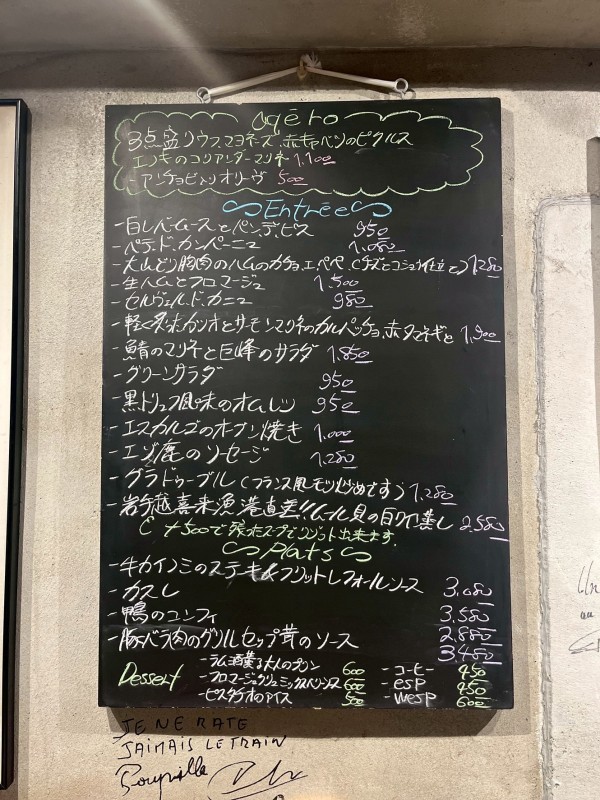 apéro
3点盛りウフマヨネーズ、赤キャベツのピクルス
エリンギのコリアンダーマリネ 1,100
-アンチョビ入りオリーヴ 500
Entrée
-白レバームースとパンデピス 950
-パテ・ド・カンパーニュ 1,080
-大山どり胸肉のハムのカチョ.エ.ペペ(チーズとコショウ仕立て) 1,280
-生ハムとフロマージュ 1,500
-セルヴェル.ド.カニュ 980
-軽く炙ったカツオとサーモンマリネのカルパッチョ、赤タマネギと 1,900
-鯖のマリネと巨峰のサラダ 1,850
-グリーンサラダ 950
-黒トリュフ風味のオムレツ 950
-エスカルゴのオーブン焼き 1,000
-エゾ鹿のソーセージ 1,280
-グラドゥーブル(フランス風モツ炒めです) 1,280
-岩手越喜来漁港直送!!ムール貝の白ワイン蒸し 2,580
+500で残ったスープでリゾット出来ます.
Plats
-牛カイノミのステーキ&フリットレフォールソース 3,080
-カスレ 3,580
-鴨のコンフィ 2,880
-豚バラ肉のグリルセップ茸のソース 3,480
Dessert
-ラム酒薫る大人のプリン 600
-フロマージュクリュミックスベリーソース 600
-ピスタチオのアイス 500
-コーヒー 450
-esp 450
-Wesp 600
JE NE RATE
JAIMAIS LE TRAIN